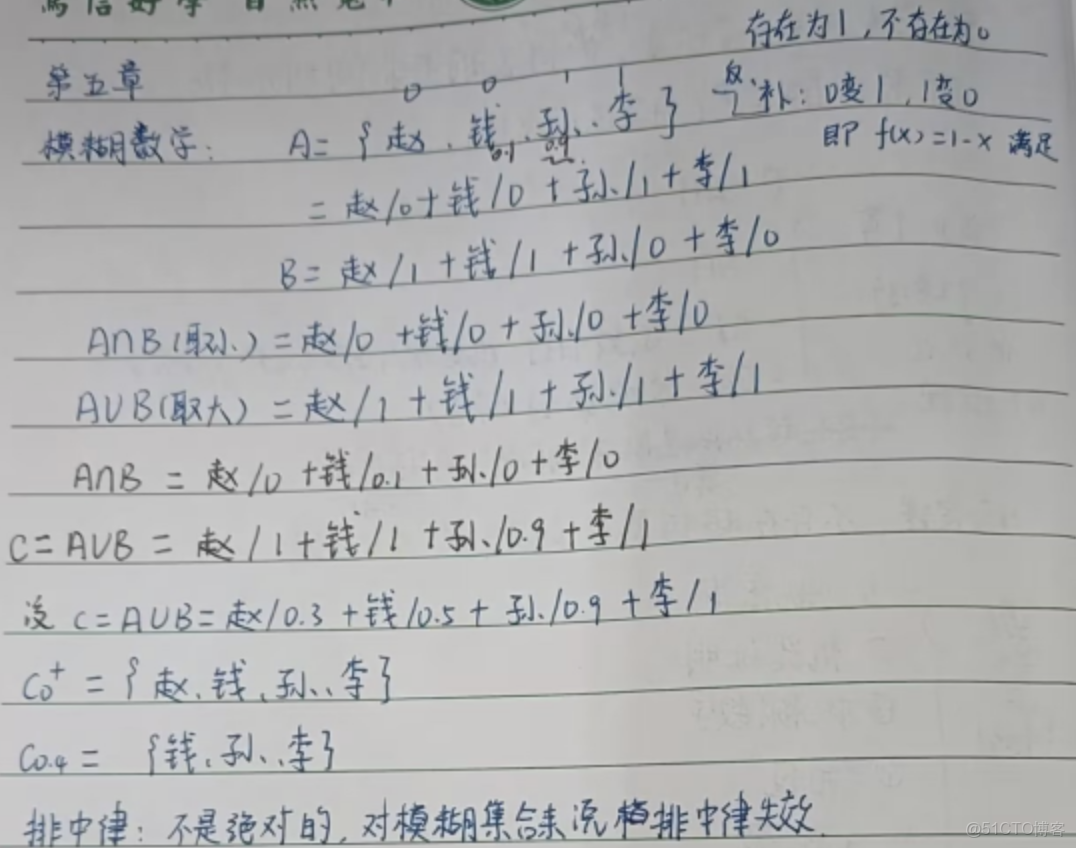 存在为1,不存在为0
第五章
0 0 1 1
模糊数学: A={赵、钱、孙、李} 补: 0变1,1变0
0.1 0.9
即 f(x)=1-x 满足
=赵/0+钱/0+孙/1+李/1
B=赵/1+钱/1+孙/0+李/0
A∩B(取小)=赵/0+钱/0+孙/0+李/0
A∪B(取大)=赵/1+钱/1+孙/1+李/1
A∩B=赵/0+钱/0.1+孙/0+李/0
C=A∪B=赵/1+钱/1+孙/0.9+李/1
设 C=A∪B=赵/0.3+钱/0.5+孙/0.9+李/1
C0+={赵、钱、孙、李}
C0.4={钱、孙、李}
排中律:不是绝对的,对模糊集合来说 排中律失效
@51CTO博客